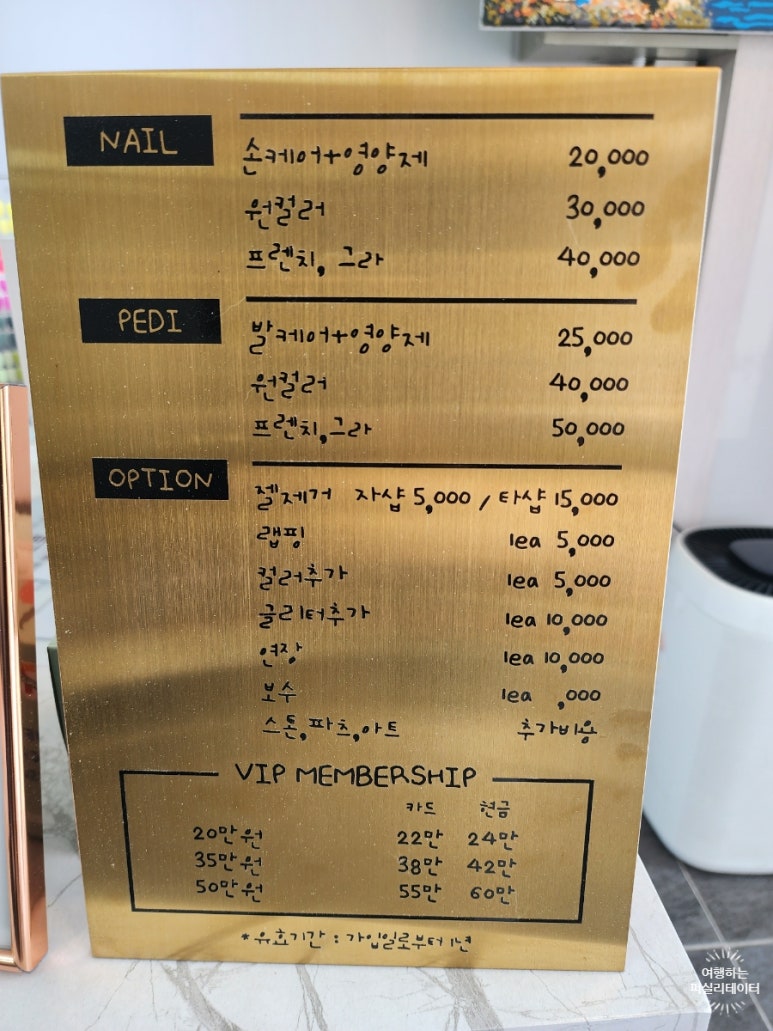 NAIL
손케어+영양제 20,000
원컬러 30,000
프렌치, 그라 40,000
PEDI
발케어+영양제 25,000
원컬러 40,000
프렌치,그라 50,000
OPTION
젤제거 자샵 5,000 / 타샵 15,000
랩핑 1ea 5,000
컬러추가 1ea 5,000
글리터추가 1ea 10,000
연장 1ea 10,000
보수 1ea ,000
스톤,파츠,아트 추가비용
VIP MEMBERSHIP
카드 현금
20만원 22만 24만
35만원 38만 42만
50만원 55만 60만
*유효기간 : 가입일로부터 1년
여행하는
퍼실리테이터